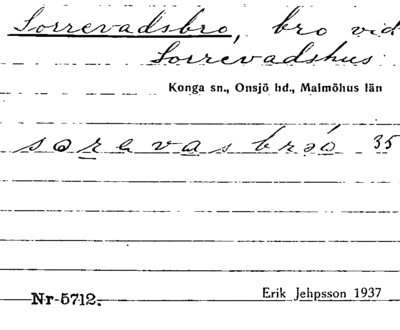 Sorrevadsbro, bro vid
Sorrevadshus
Konga sn., Onsjö hd., Malmöhus län
sɷrevasbrɷó 35
Nr 5712.
Erik Jehpsson 1937